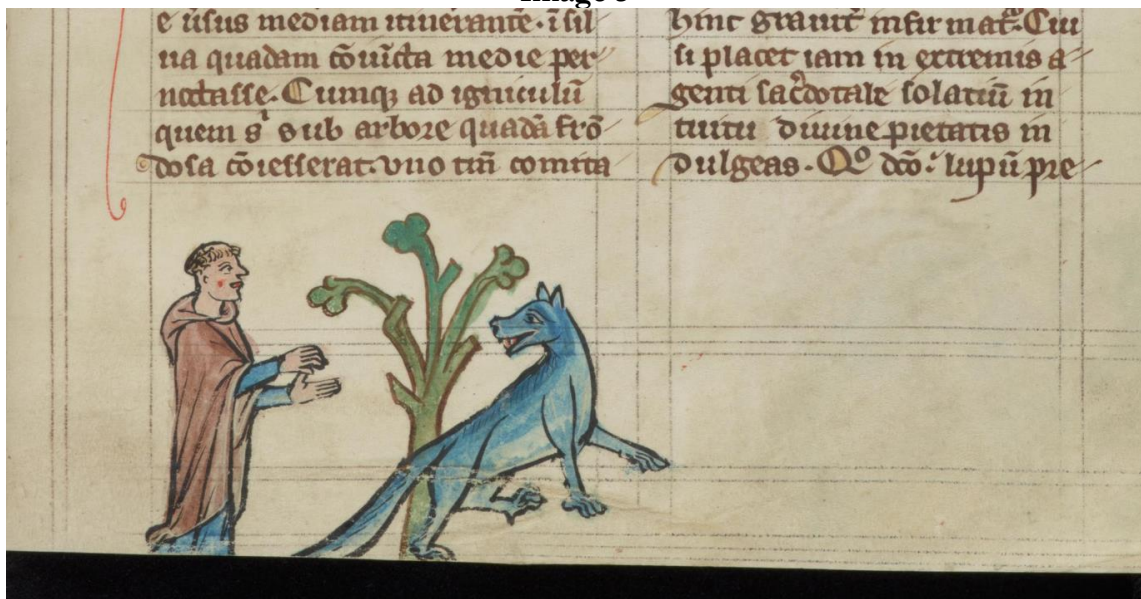 e ūsus mediam itinerante. ī sil
ua quadam cōuicta medie per
noctasse. Cumq; ad igniculū
quem sⁱ sub arbore quadā frō
dosa cōiesserat. uno tm̄ comita
hinc grauit᷑ infirmat᷑. Cui
si placet iam in extremis a
genti sac̾dotale solatiū in
tuitu diuine pietatis in
dulgeas. Qͦ dc̄o: lupū pre